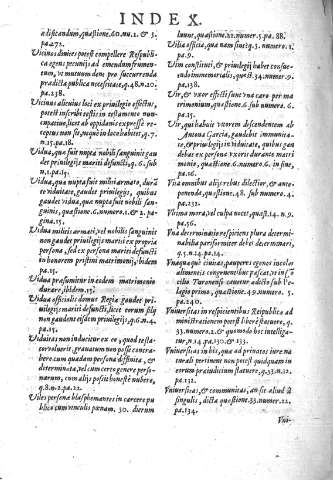 INDEX.
alificandum, quæstione. 60. nu. 2. & 3.
pa. 272.
Vicinus dimires potest compellere Respublica
egens pecunijs ad emendum frumentum,
vt mutuum den pro succurrenda
prædicta publica necessitate, q. 48. n. 20.
pa. 238.
Vicinus alicuius loci ex privilegio effectus,
potest inscribi testis in testamento nuncupatiuo,
licet ab oppidanis expressè receptus
non sit, neque in loco habitet, q. 7.
n. 15. pa. 18.
Vidua, quæ fuit nupta nobili sanguinis gaudet
privilegijs mariti defuncti, q. 6. sub
n. 1. pa. 15.
Vidua, quæ nupta fuit militi armato, durãte
viduitate, gaudet privilegijs, quibus
gaudet vidua, quæ nupta fuit nobili sanguinis,
quæstione. 6. numero. 1. & 2. pagina.
15.
Vidua militis armati, vel nobilis sanguinis
non gaudet privilegijs mariti ex propria
persona, sed ex persona mariti defuncti
ob honorem pristini matrimonij, ibidem
pa. 15.
Vidua præsumitur in eodem matrimonio
durare, ibidem. 15.
Vidua officialis domus Regiæ gaudet privilegijs
mariti defuncti, licet eorum filij
non gaudeant eisdem privilegijs, q. 6. n. 4.
pa. 15.
Viduitas non inducitur ex eo, quod testator
voluerit, granatum non posse contrahere
cum quadam persona diffinita, &
determinata, vel cum certo genere personarum,
cum alijs possit honestè nubere,
q. 8. n. 2. pa. 22.
Viles personæ blasphemantes in carcere publico
cum vinculis pœnam, 30. dierum
luunt, quæstione. 22. numero. 5. pa. 88.
Vilia officia, quæ nam sint, q. 3. numero. 1.
pa. 9.
Vim constituti, & privilegij habet consuetudo
immemorialis, quæst. 34. numero. 9.
pa. 138.
Vir, & vxor efficiuntur vna caro per matrimonium,
quæstione. 6. sub numero. 6.
pa. 15.
Vir, qui habuit vxorem descendentem ab
Antona Garcia, gaudebit immunitate,
& privilegijs in viduitate, quibus gaudebat
ex persona vxoris durante matrimonio,
quæstione. 6. numero. 6. in fine,
pa. 16.
Vita omnibus alijs rebus dilectior, & anteponenda,
quæstione. 48. sub numero. 4.
pa. 232.
Vltima mora, vel culpa nocet, quæst. 14. n. 9.
pa. 56.
Vna determinatio respiciens plura determinabilia
pariformiter debet determinari,
q. 5. n. 14. pa. 14.
Vnaquæque ciuitas, pauperes egenos incolas
alimentis congruentibus pascat,
Turonense cauetur dicto sub
primo, quæstione. 49. numero. 5.
pa. 240.
Vniuersitas in respicientibus Reipublicæ administrationem
potest libere statuere, q.
33. numero. 21. & quomodo hoc intelligatur,
n. 154. pa. 130. & 133.
Vniuersitas in his, quæ ad priuatos iure naturali
pertinent non potest quidquam in
eorum præiudicium statuere, q. 33. n. 21.
pa. 132.
Vniuersitas, & communitas, an sit aliud à
singulis, dicta quæstione. 33. numer. 22.
pa. 134.
Vni-